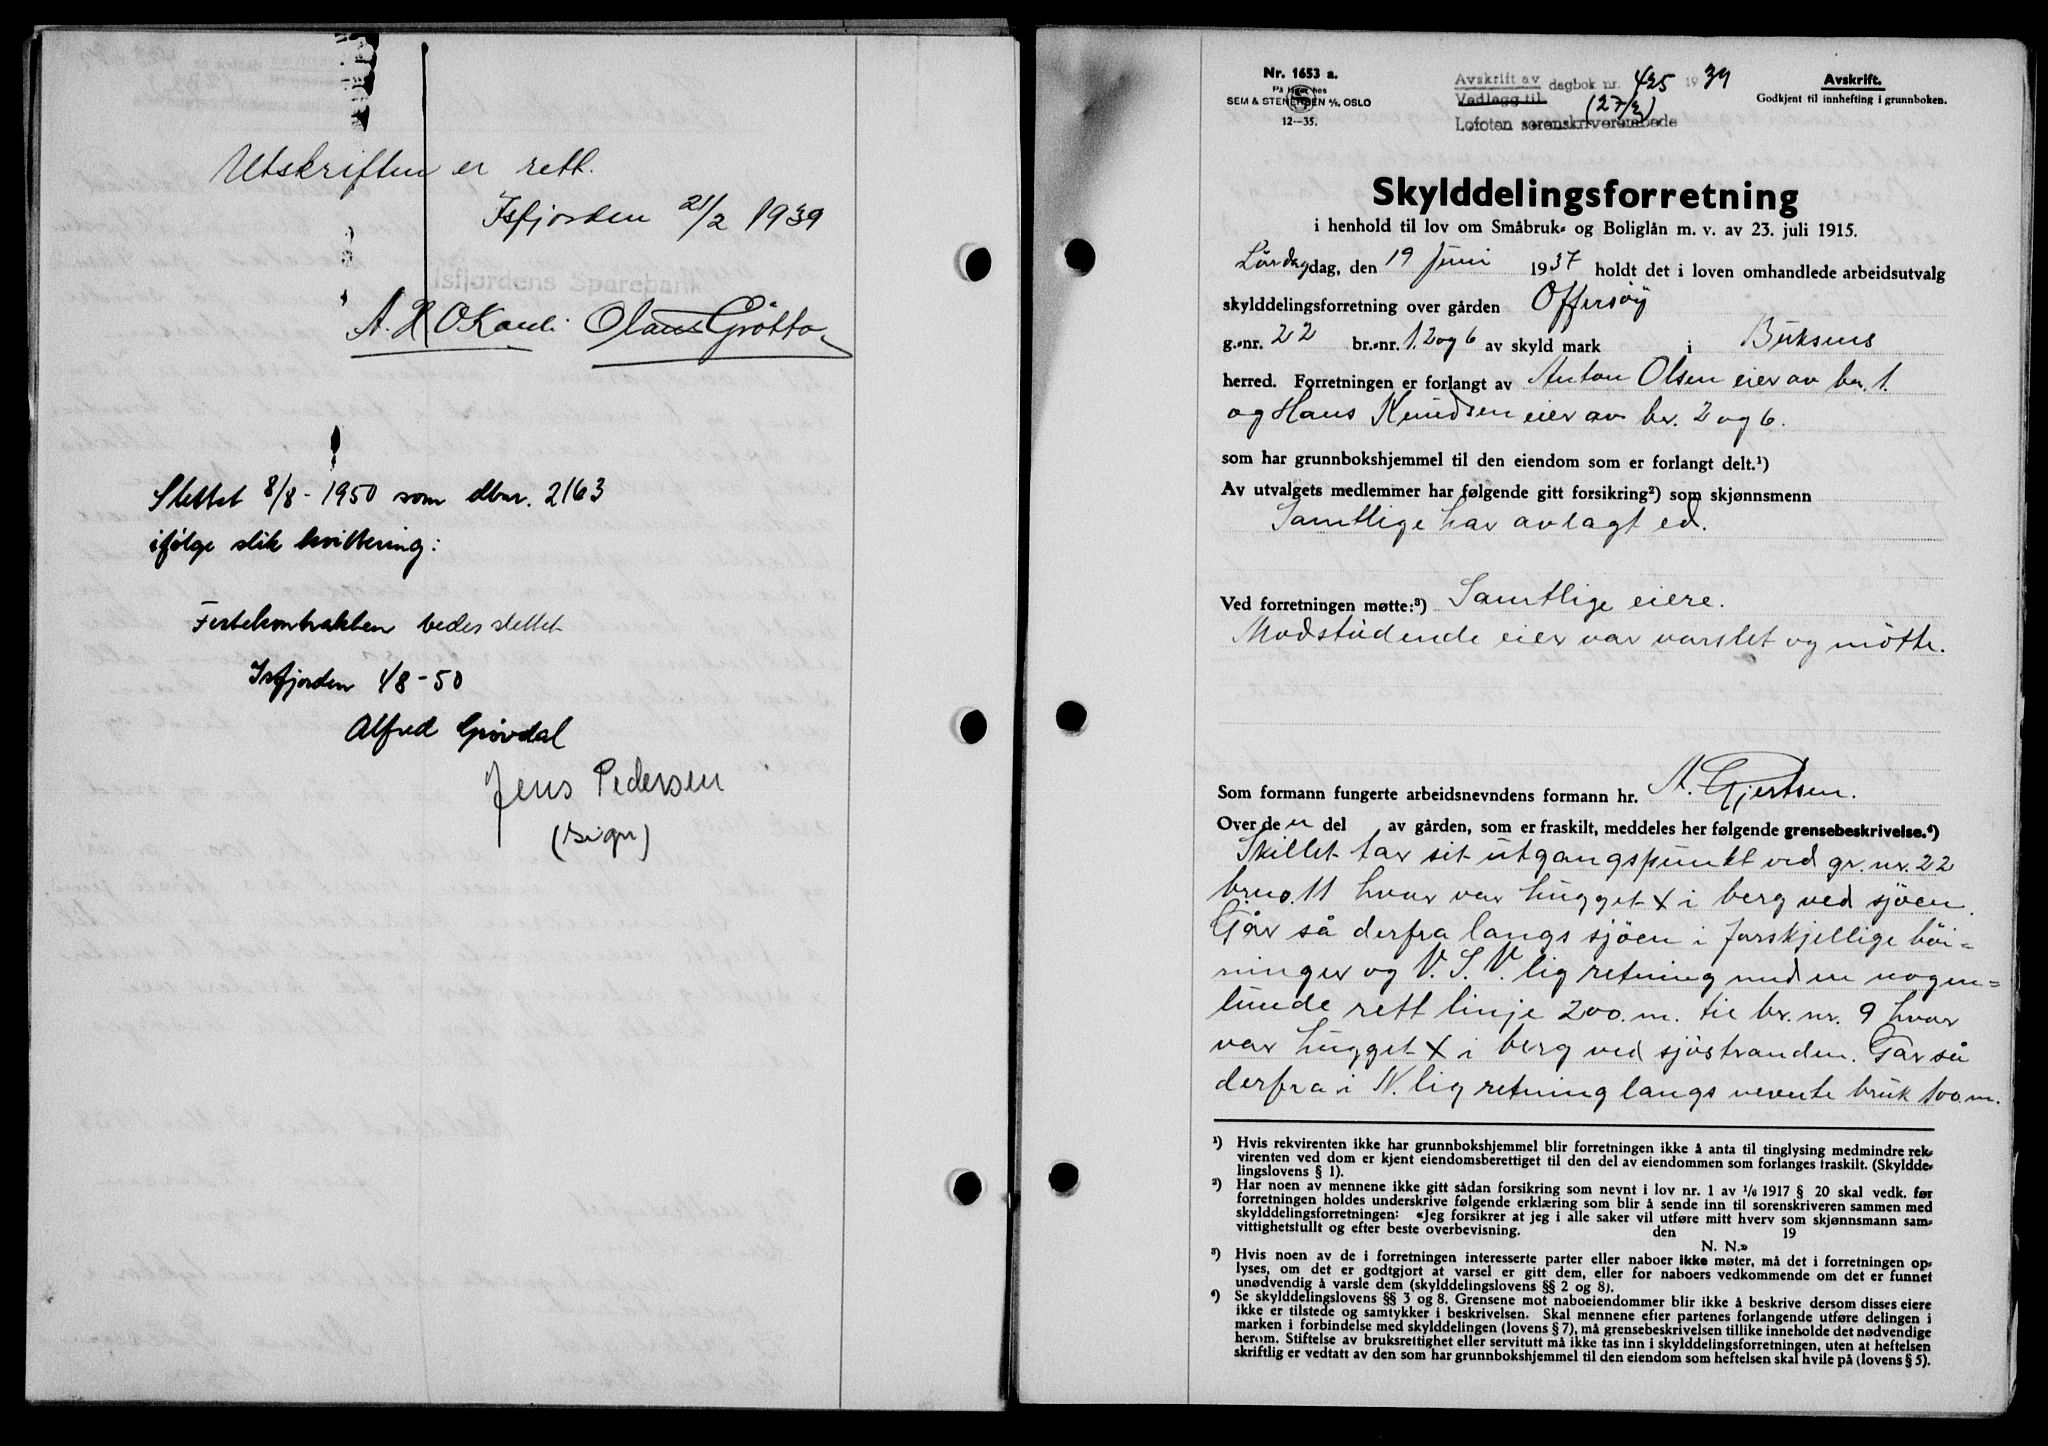 Utskriften er rett.
Isfjorden 21/2 1939
Isfjordens Sparebank
A. H. O. Kavli. Olaus Grøtta
Slettet 8/8-1950 som dbnr. 2163
ifølge slik kvittering:
Festekontrakten bedes slettet
Isfjorden 1/8-50
Alfred Grøvdal
Jens Pedersen
(sign)
Nr. 1653 a.
På lager hos
SEM & STENERSEN A/S, OSLO
12—35.
Avskrift av dagbok nr. 425 1939
Vedlegg til (27/3)
Lofoten sorenskriverembede
Avskrift.
Godkjent til innhefting i grunnboken.
Skylddelingsforretning
i henhold til lov om Småbruk- og Boliglån m. v. av 23. juli 1915.
Lördagdag, den 19 Juni 1937 holdt det i loven omhandlede arbeidsutvalg
skylddelingsforretning over gården Offersöy
g.-nr. 22 br.-nr. 1, 2 og 6 av skyld mark i Buksnes
herred. Forretningen er forlangt av Anton Olsen eier av br. 1.
og Hans Knudsen eier av br. 2 og 6.
som har grunnbokshjemmel til den eiendom som er forlangt delt.¹)
Av utvalgets medlemmer har følgende gitt forsikring²) som skjønnsmenn
Samtlige har avlagt ed.
Ved forretningen møtte:³) Samtlige eiere.
Modstüdende eier var varslet og mötte.
Som formann fungerte arbeidsnevndens formann hr. A. Gjertsen.
Over den del av gården, som er fraskilt, meddeles her følgende grensebeskrivelse.⁴)
Skillet tar sit utgangspunkt ved gr. nr. 22
brno. 11 hvor var hugget X i berg ved sjöen.
Går så derfra langs sjöen i forskjellige böi-
ninger og V. S. V. lig retning med en nogen-
lunde rett linje 200. m. til br. nr. 9 hvor
var hugget X i berg ved sjöstranden. Går så
derfra i N. lig retning langs nevnte bruk 100 m.
¹) Hvis rekvirenten ikke har grunnbokshjemmel blir forretningen ikke å anta til tinglysing medmindre rek-
virenten ved dom er kjent eiendomsberettiget til den del av eiendommen som forlanges fraskilt. (Skyldde-
lingslovens § 1).
²) Har noen av mennene ikke gitt sådan forsikring som nevnt i lov nr. 1 av 1/6 1917 § 20 skal vedk. før
forretningen holdes underskrive følgende erklæring som blir å sende inn til sorenskriveren sammen med
skylddelingsforretningen: «Jeg forsikrer at jeg i alle saker vil utføre mitt hverv som skjønnsmann sam-
vittighetsfullt og efter beste overbevisning. den 19
N. N.»
³) Hvis noen av de i forretningen interesserte parter eller naboer ikke møter, må det i forretningen op-
lyses, om det er godtgjort at varsel er gitt dem, eller for naboers vedkommende om det er funnet
unødvendig å varsle dem (skylddelingslovens §§ 2 og 8).
⁴) Se skylddelingslovens §§ 3 og 8. Grensene mot naboeiendommer blir ikke å beskrive dersom disses eiere
ikke er tilstede og samtykker i beskrivelsen. Skal mennene efter partenes forlangende utføre delingen i
marken i forbindelse med skylddelingen (lovens § 7), må grensebeskrivelsen tillike inneholde det nødvendige
herom. Stiftelse av bruksrettighet eller servitutt må ikke tas inn i skylddelingsforretningen, uten at heftelsen
skriftlig er vedtatt av den som har grunnbokshjemmel til den eiendom som heftelsen skal hvile på (lovens § 5).